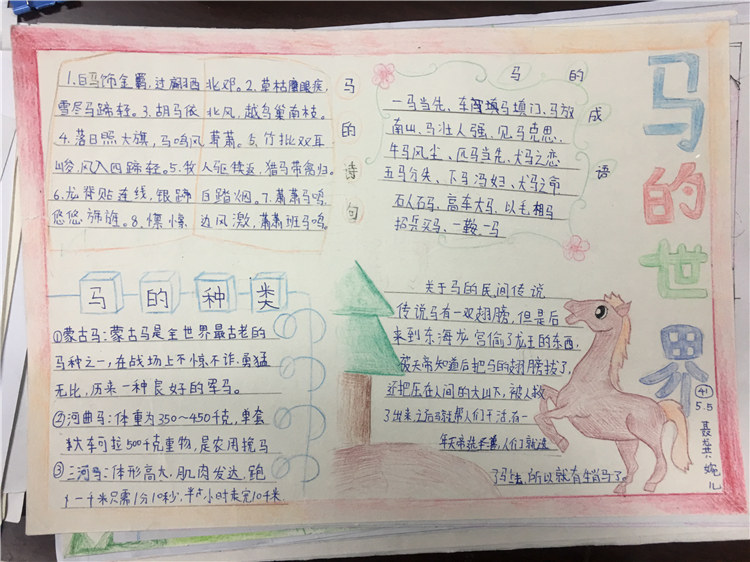 马的世界
马的诗句
1.白马饰金羁,过翩西北邓。2.草枯鹰眼疾,
雪尽马蹄轻。3.胡马依北风,越鸟巢南枝。
4.落日照大旗,马鸣风萧萧。5.竹批双耳
峻,风入四蹄轻。5.牧人驱犊返,猎马带禽归。
6.龙脊贴连钱,银蹄白踏烟。7.萧萧马鸣,
悠悠旆旌。8.慄慄边风激,萧萧班马鸣。
马的成语
一马当先、车填马填门、马放
南山、马壮人强、见马克思、
牛马风尘、匹马当先、犬马之恋
五马分矢、下马冯妇、犬马之命
石人石马、高车大马、以毛相马
招兵买马、一鞍一马
马的种类
①蒙古马:蒙古马是全世界最古老的
马种之一,在战场上不惊不诈,勇猛
无比,历来一种良好的军马。
②河曲马:体重为350~450千克,单套
大车可拉500千克重物,是农用挽马
③三河马:体形高大,肌肉发达,跑
一千米只需1分10秒,半小时走完10千米
关于马的民间传说
传说马有一双翅膀,但是后
来到东海龙宫偷了龙王的东西,
被天帝知道后把马的翅膀拔了,
还把压在人间的大山下,被人救
了出来之后马就帮人们干活,有一
年天帝选生肖,人们就选
了马去,所以就有生肖马了。
41
5.5
聂龚婉儿